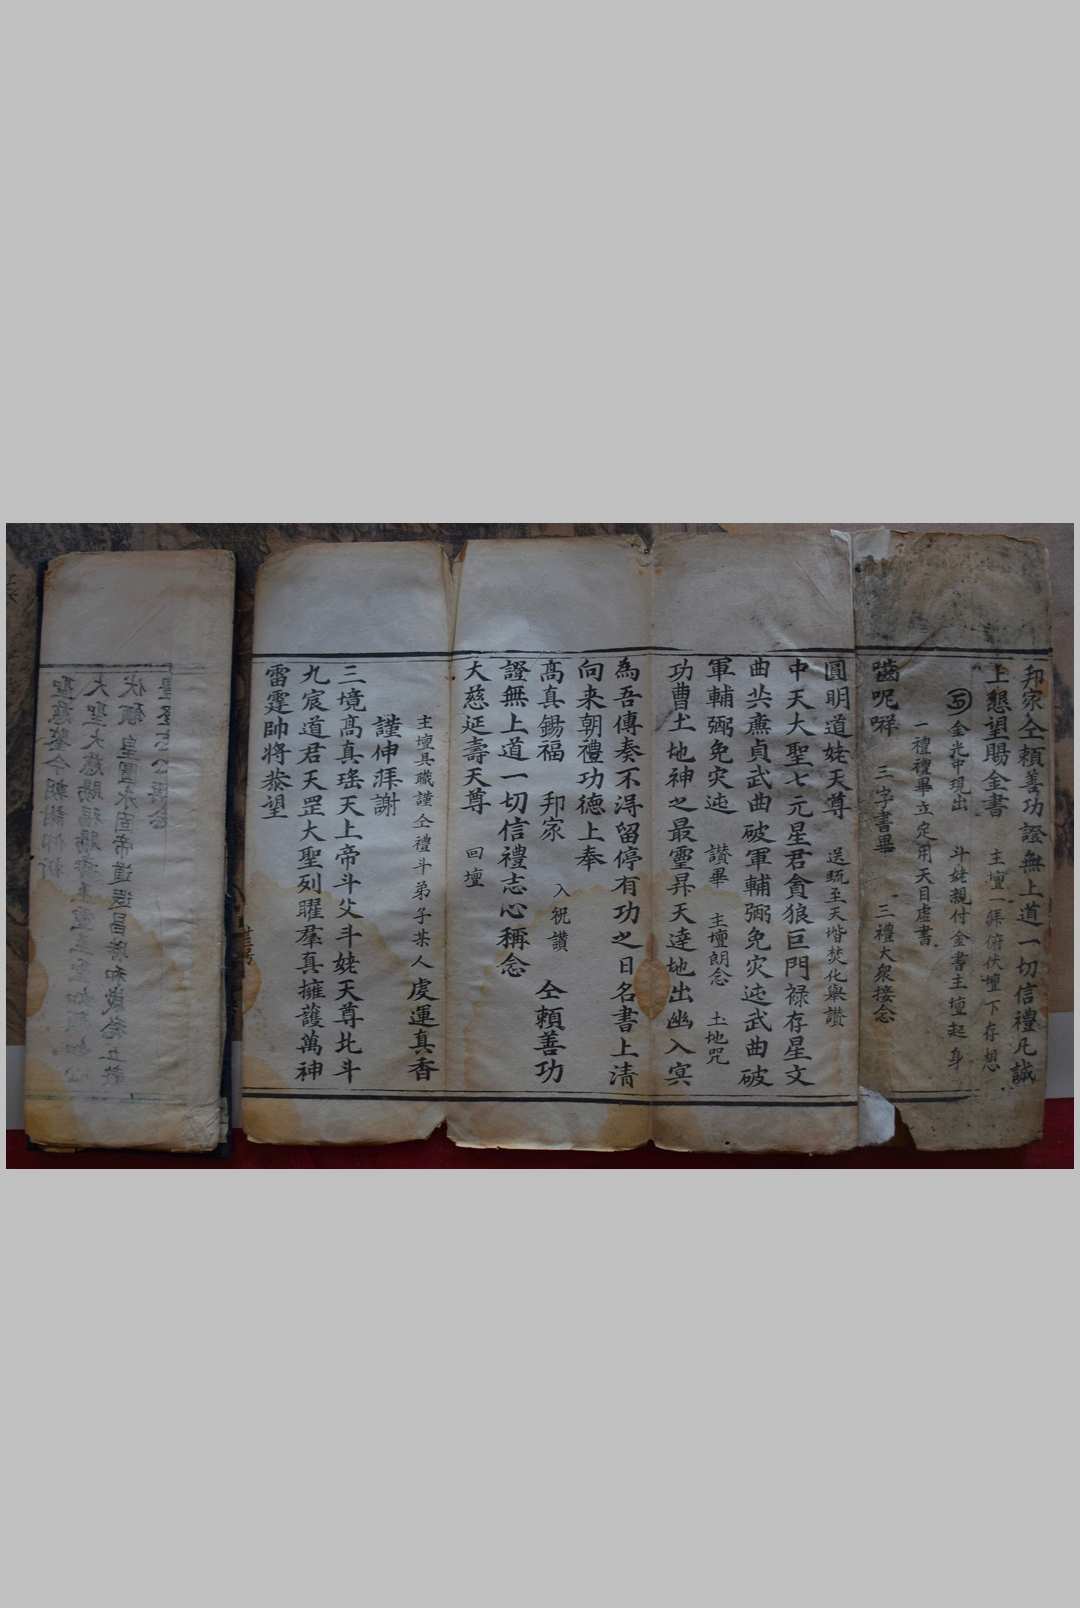 邦家仝賴善功證無上道一切信禮凡誠
上懇望賜金書 主壇一拜俯伏壇下存想
金光中現出 斗姥親付金書主壇起身
一禮禮畢立定用天目虛書
嚙呢㗭 三字書畢 三禮大衆接念
圓明道姥天尊 送疏至天堦焚化舉讚
中天大聖七元星君貪狼巨門禄存星文
曲共廉貞武曲破軍輔弼免灾迍武曲破
軍輔弼免灾迍 讃畢 主壇朗念 土地咒
功曹土地神之最靈昇天達地出幽入冥
為吾傳奏不淂留停有功之日名書上清
向来朝禮功徳上奉
髙真錫福 邦家 入祝讃 仝賴善功
證無上道一切信禮志心稱念
大慈延壽天尊 回壇
主壇具職謹仝禮斗弟子某人虔運真香
謹伸拜謝
三境髙真瑤天上帝斗父斗姥天尊北斗
九宸道君天罡大聖列曜羣真擁護萬神
雷霆帥将恭望